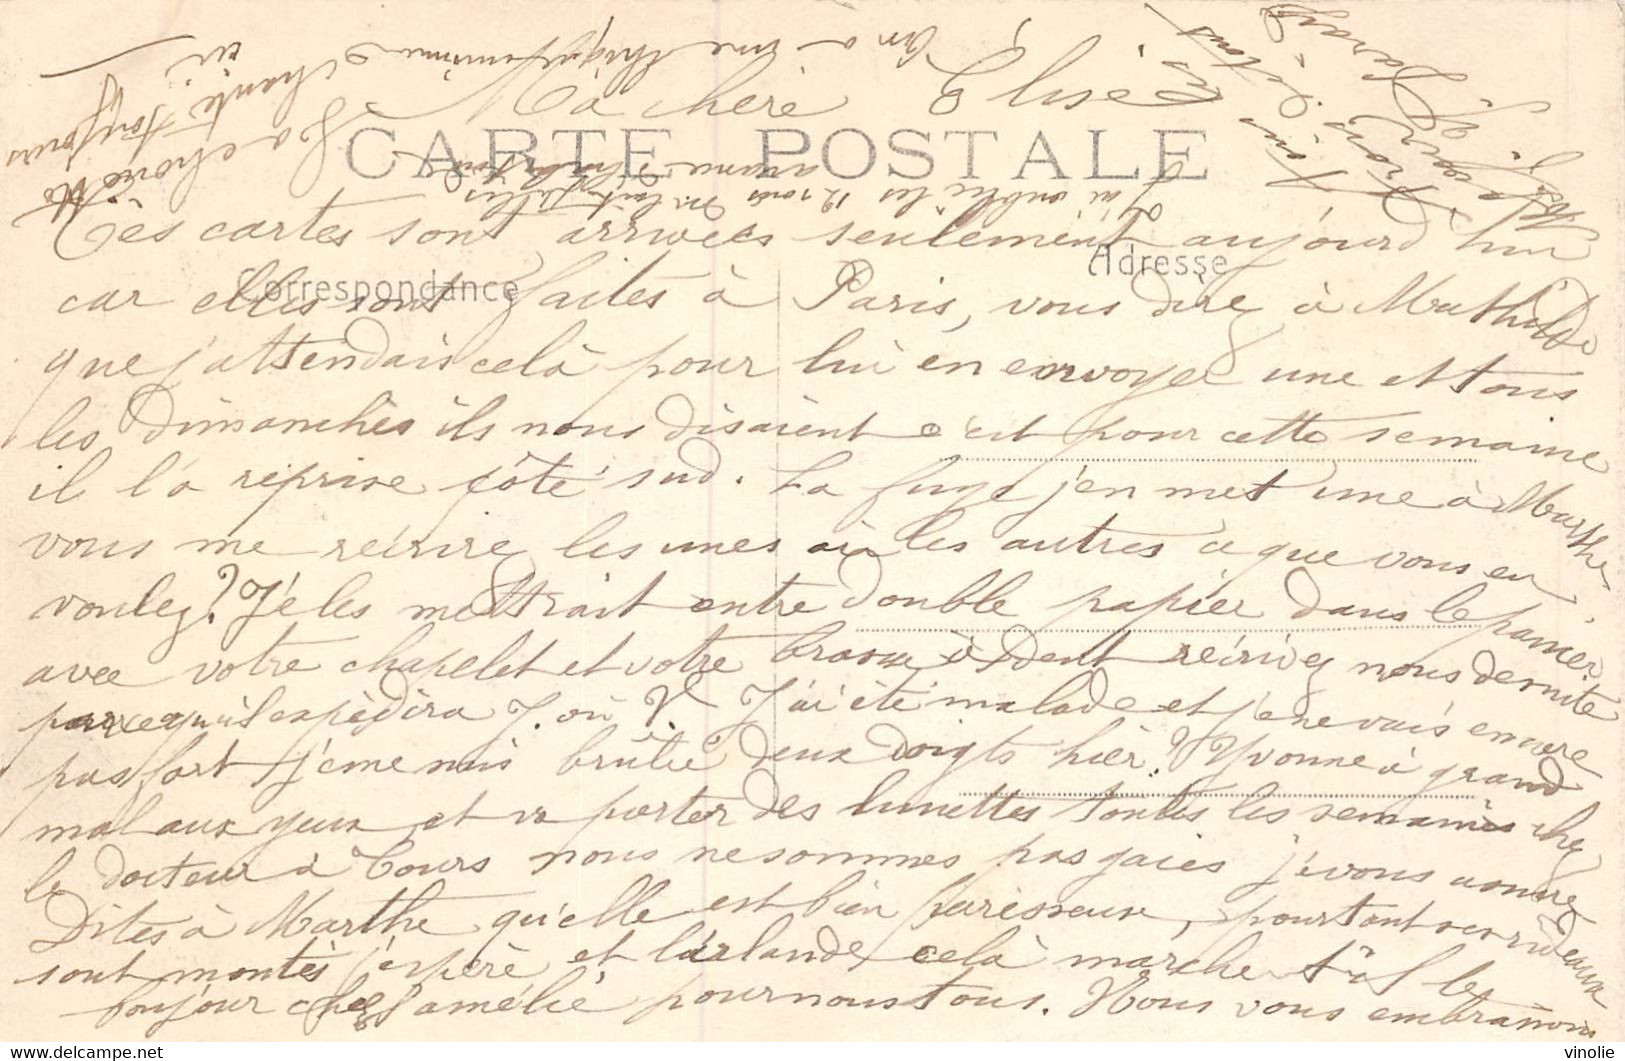 Ma chère Elise
CARTE POSTALE
J'ai oublié les 12 sous
Ces cartes sont arrivées seulement aujourd hui
Adresse
Correspondance
car elles sont faites à Paris, vous direz à Mathilde
que j'attendais celà pour lui en envoyer une et tous
les dimanches ils nous disaient c'est pour cette semaine
il l'a reprise côté sud. La j'en met une à Marthe
vous me réecrirez les unes les autres ce que vous en
voulez? Je les mettrait entre double papier dans le panier
avec votre chapelet et votre brosse à dent récrivez nous de suite
parcequ'il expèdira J. ou V J'ai été malade et je ne vais encore
pas fort je me suis brûlée deux doigts hièr? Yvonne à grand
mal aux yeux et va porter des lunettes toutes les semaines chez
le docteur à Tours nous ne sommes pas gaies j'vous
Dites à Marthe qu'elle est bien paresseux, pourtant
sont montés j'espère et celà marche
bonjour chez amélie pour nous tous. Nous vous embrassons